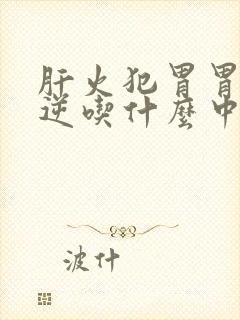 肝火犯胃胃
逆喫什麼中
波什